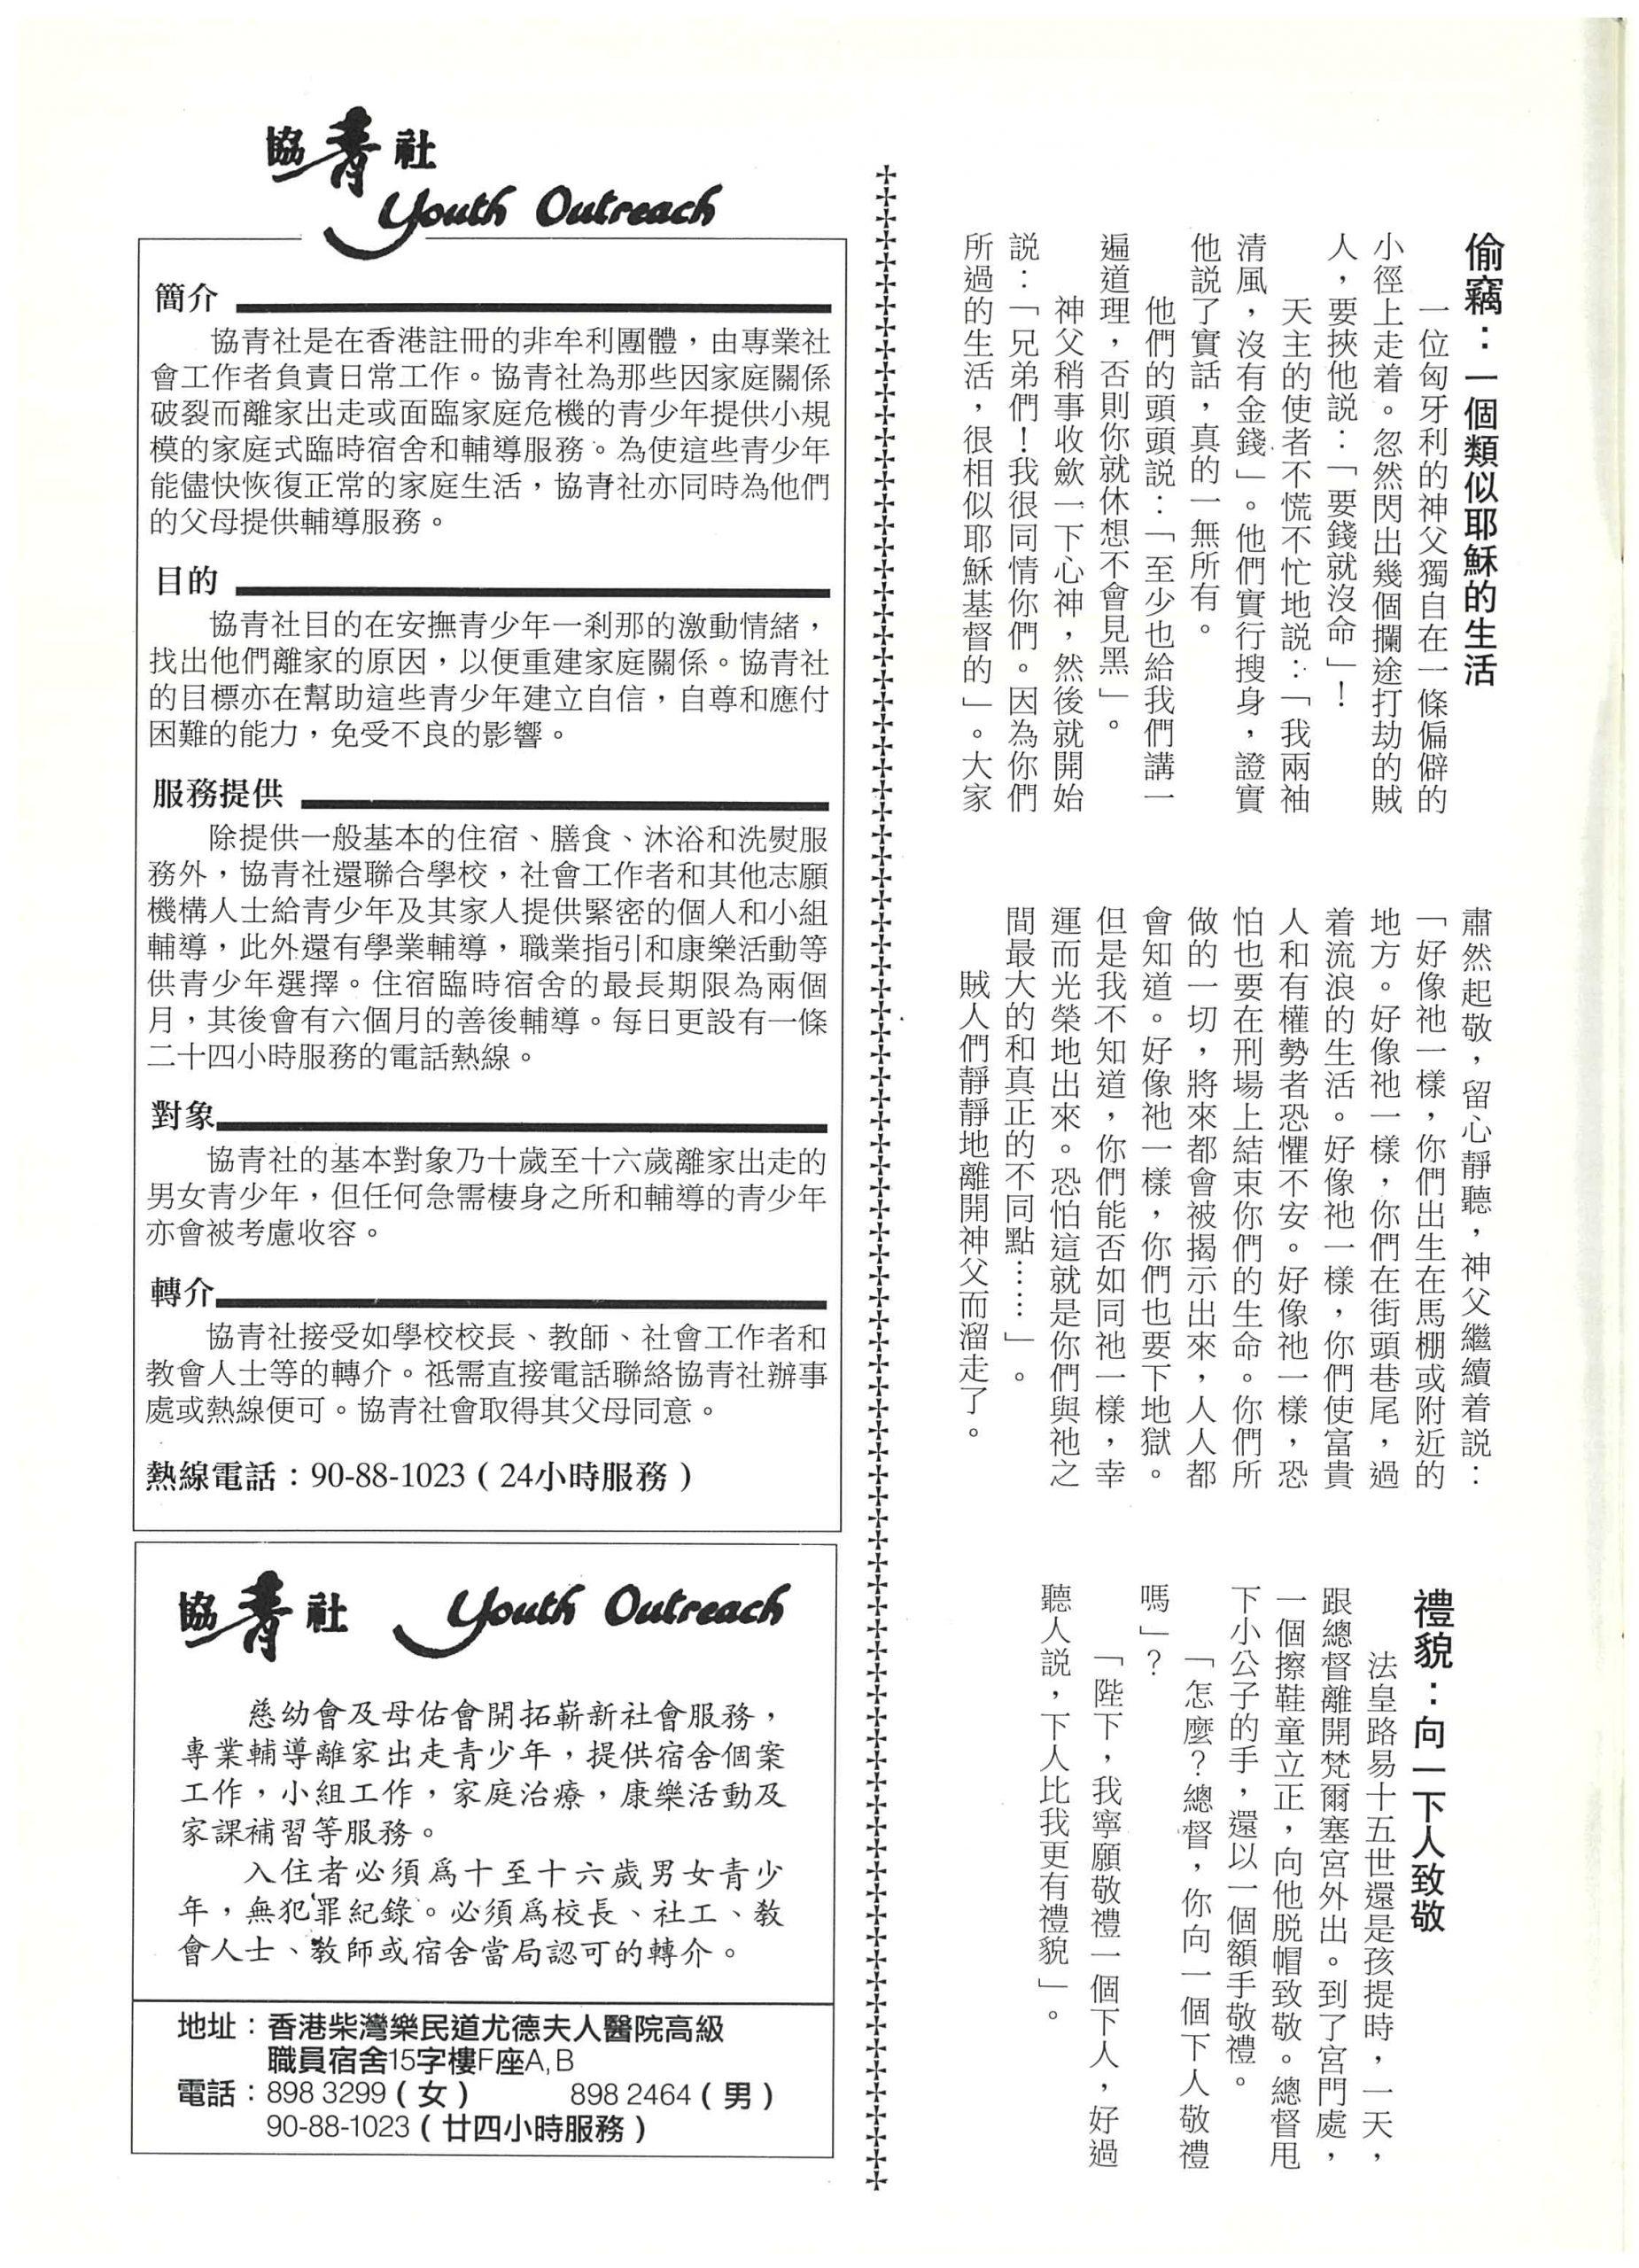 偷竊：一個類似耶穌的生活
一位匈牙利的神父獨自在一條偏僻的
小徑上走着。忽然閃出幾個攔途打劫的賊
人，要挾他説：「要錢就沒命」！
天主的使者不慌不忙地説：「我兩袖
清風，沒有金錢」。他們實行搜身，證實
他説了實話，真的一無所有。
他們的頭頭説：「至少也給我們講一
遍道理，否則你就休想不會見黑」。
神父稍事收歛一下心神，然後就開始
説：「兄弟們！我很同情你們。因為你們
所過的生活，很相似耶穌基督的」。大家
肅然起敬，留心靜聽，神父繼續着説：
「好像祂一樣，你們出生在馬棚或附近的
地方。好像祂一樣，你們在街頭巷尾，過
着流浪的生活。好像祂一樣，你們使富貴
人和有權勢者恐懼不安。好像祂一樣，恐
怕也要在刑場上結束你們的生命。你們所
做的一切，將來都會被揭示出來，人人都
會知道。好像祂一樣，你們也要下地獄。
但是我不知道，你們能否如同祂一樣，幸
運而光榮地出來。恐怕這就是你們與祂之
間最大的和真正的不同點……」。
賊人們靜靜地離開神父而溜走了。
禮貌：向一下人致敬
法皇路易十五世還是孩提時，一天，
跟總督離開梵爾塞宮外出。到了宮門處，
一個擦鞋童立正，向他脱帽致敬。總督甩
下小公子的手，還以一個額手敬禮。
「怎麼？總督，你向一個下人敬禮
嗎」？
「陛下，我寧願敬禮一個下人，好過
聽人説，下人比我更有禮貌」。
協青社
Youth Outreach
簡介
協青社是在香港註冊的非牟利團體，由專業社
會工作者負責日常工作。協青社為那些因家庭關係
破裂而離家出走或面臨家庭危機的青少年提供小規
模的家庭式臨時宿舍和輔導服務。為使這些青少年
能儘快恢復正常的家庭生活，協青社亦同時為他們
的父母提供輔導服務。
目的
協青社目的在安撫青少年一剎那的激動情緒，
找出他們離家的原因，以便重建家庭關係。協青社
的目標亦在幫助這些青少年建立自信，自尊和應付
困難的能力，免受不良的影響。
服務提供
除提供一般基本的住宿、膳食、沐浴和洗熨服
務外，協青社還聯合學校，社會工作者和其他志願
機構人士給青少年及其家人提供緊密的個人和小組
輔導，此外還有學業輔導，職業指引和康樂活動等
供青少年選擇。住宿臨時宿舍的最長期限為兩個
月，其後會有六個月的善後輔導。每日更設有一條
二十四小時服務的電話熱線。
對象
協青社的基本對象乃十歲至十六歲離家出走的
男女青少年，但任何急需棲身之所和輔導的青少年
亦會被考慮收容。
轉介
協青社接受如學校校長、教師、社會工作者和
教會人士等的轉介。祗需直接電話聯絡協青社辦事
處或熱線便可。協青社會取得其父母同意。
熱線電話：90-88-1023（24小時服務）
協青社 Youth Outreach
慈幼會及母佑會開拓嶄新社會服務，
專業輔導離家出走青少年，提供宿舍個案
工作，小組工作，家庭治療，康樂活動及
家課補習等服務。
入住者必須爲十至十六歲男女青少
年，無犯罪紀錄。必須爲校長、社工、教
會人士、教師或宿舍當局認可的轉介。
地址：香港柴灣樂民道尤德夫人醫院高級
職員宿舍15字樓F座A,B
電話：898 3299（女） 898 2464（男）
90-88-1023（廿四小時服務）